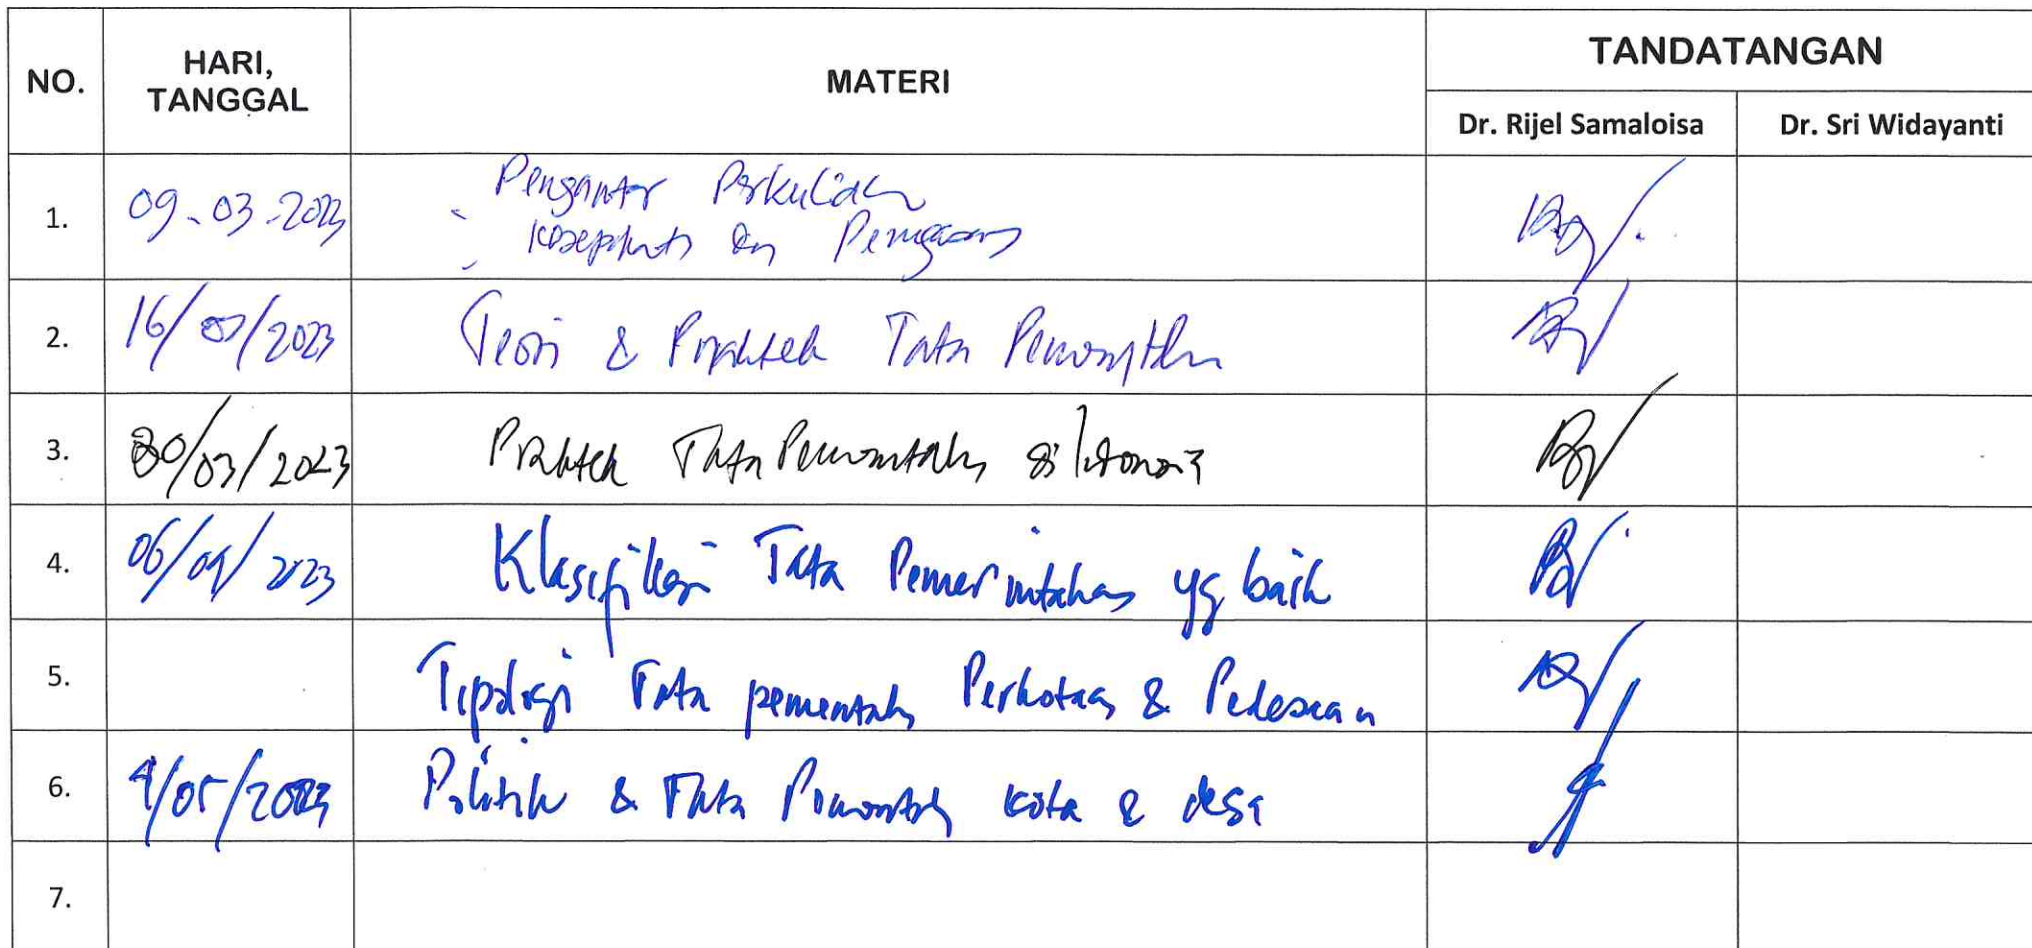 NO.
HARI,
TANGGAL
MATERI
TANDATANGAN
Dr. Rijel Samaloisa
Dr. Sri Widayanti
1.
09-03-2023
Pengantar Perkuliahan
dan Penugasan
2.
16/03/2023
Teori & Praktek Tata Pemerintahan
3.
30/03/2023
Praktek Tata Pemerintahan di
4.
06/04/2023
Klasifikasi Tata Pemerintahan yg baik
5.
Tipologi Tata pemerintah Perkotaan & Pedesaan
6.
4/05/2023
Politik & Tata Pemerintah kota & desa
7.